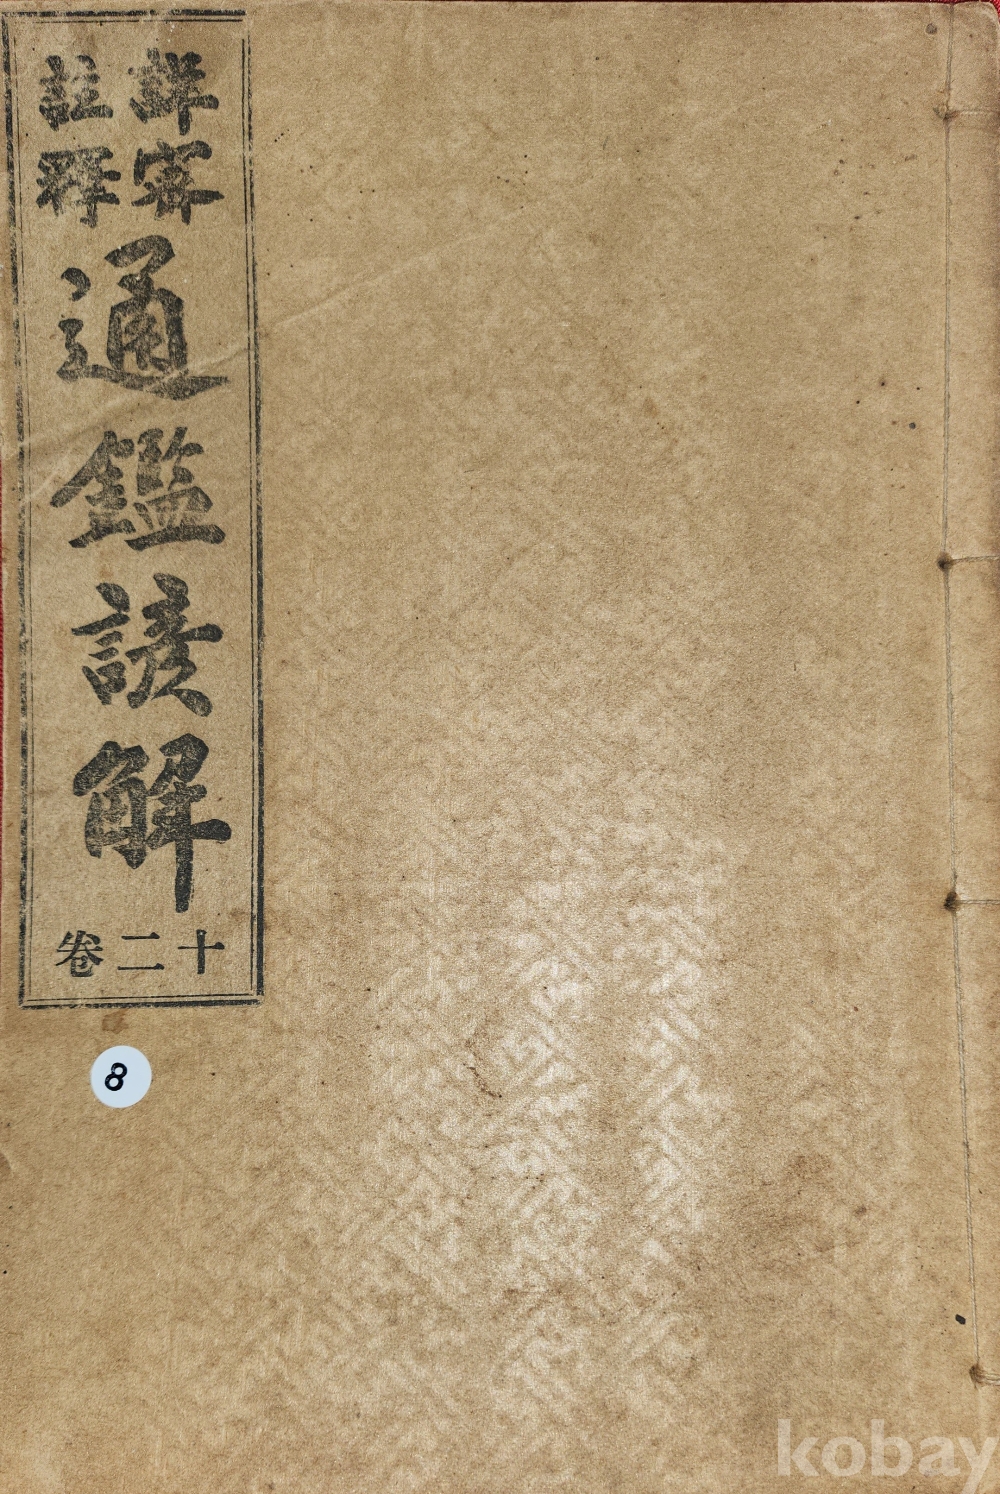 詳密
註釋
通鑑諺解
十二卷
8
kobay